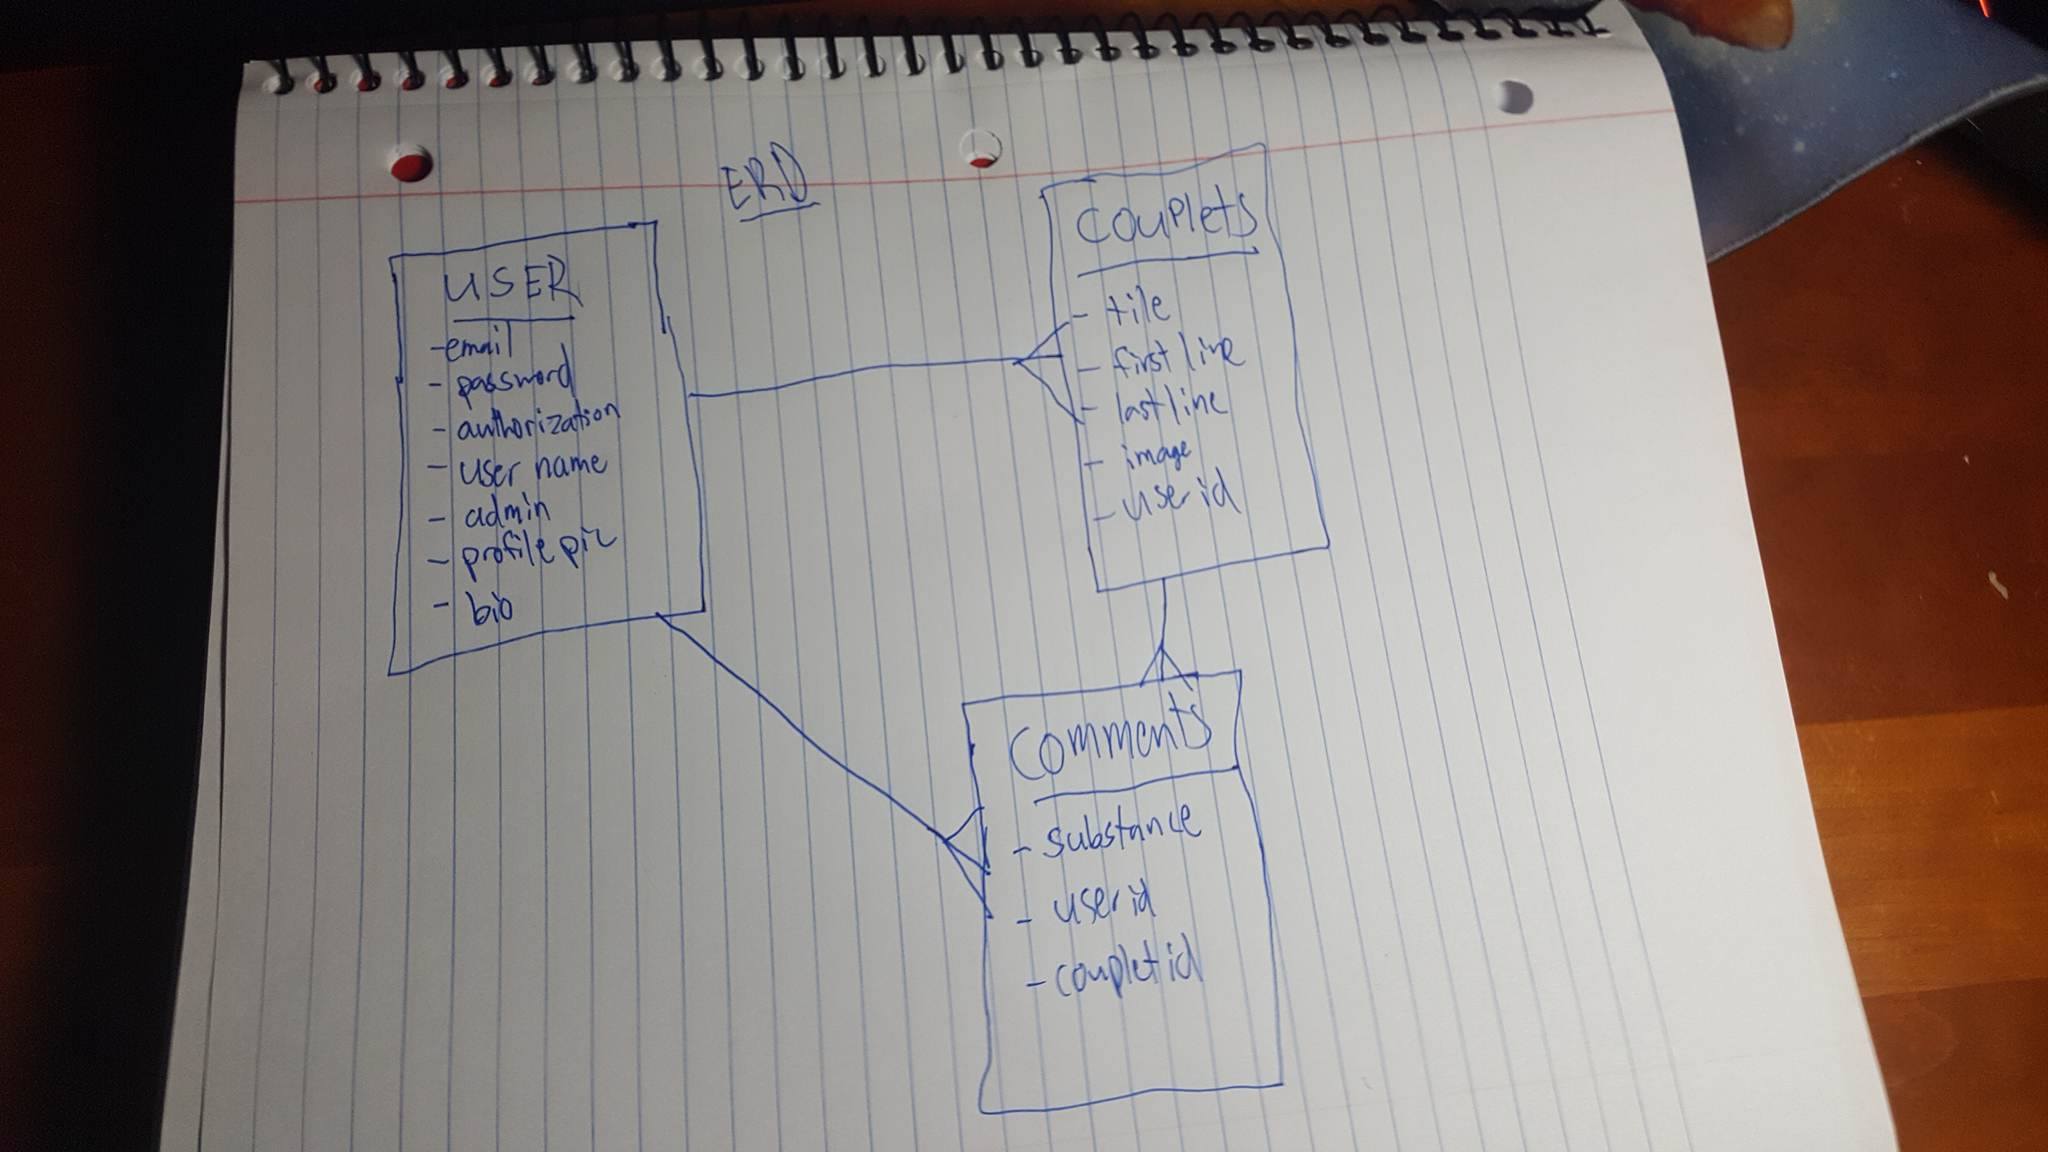 ERD
USER
- email
- password
- authorization
- user name
- admin
- profile pic
- bio
Couplets
- tile
- first line
- last line
- image
- user id
Comments
- substance
- user id
- couplet id